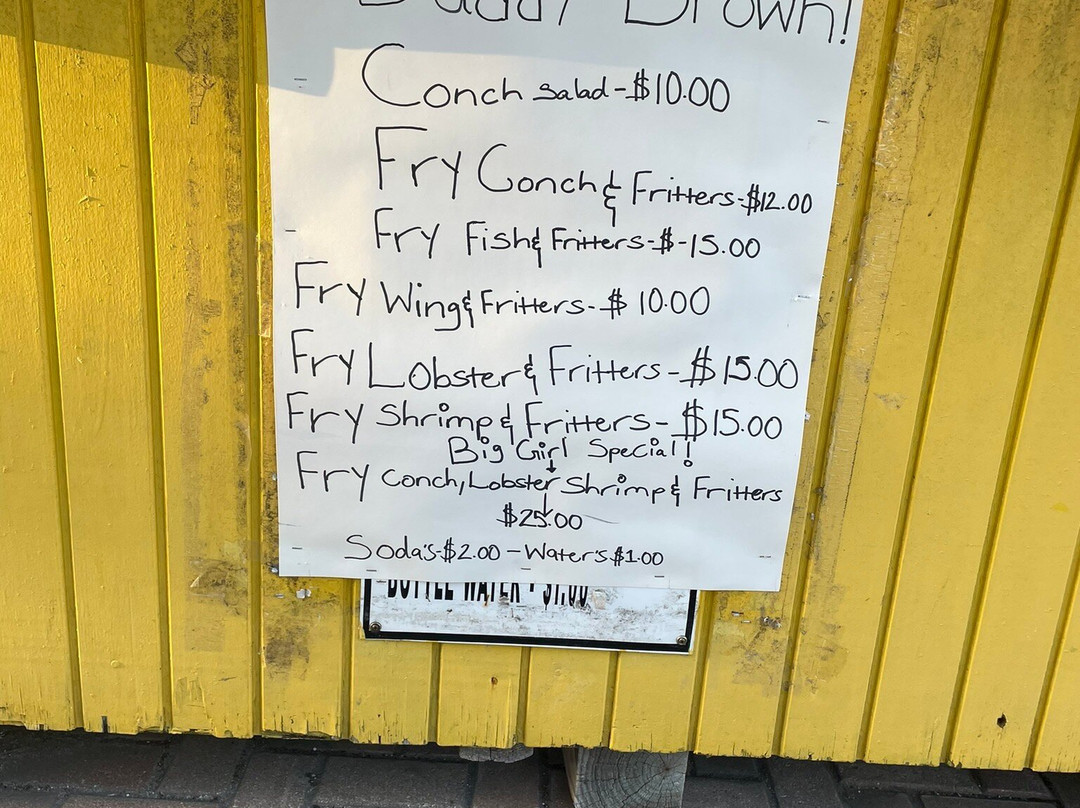 Daddy Brown!
Conch salad-$10.00
Fry Conch & Fritters-$12.00
Fry Fish & Fritters-$-15.00
Fry Wing & Fritters-$ 10.00
Fry Lobster & Fritters-$15.00
Fry Shrimp & Fritters-$15.00
Big Girl Special!
Fry Conch, Lobster Shrimp & Fritters
$25.00
Soda's-$2.00-Water's $1.00
BOTTLE WATER - $1.00